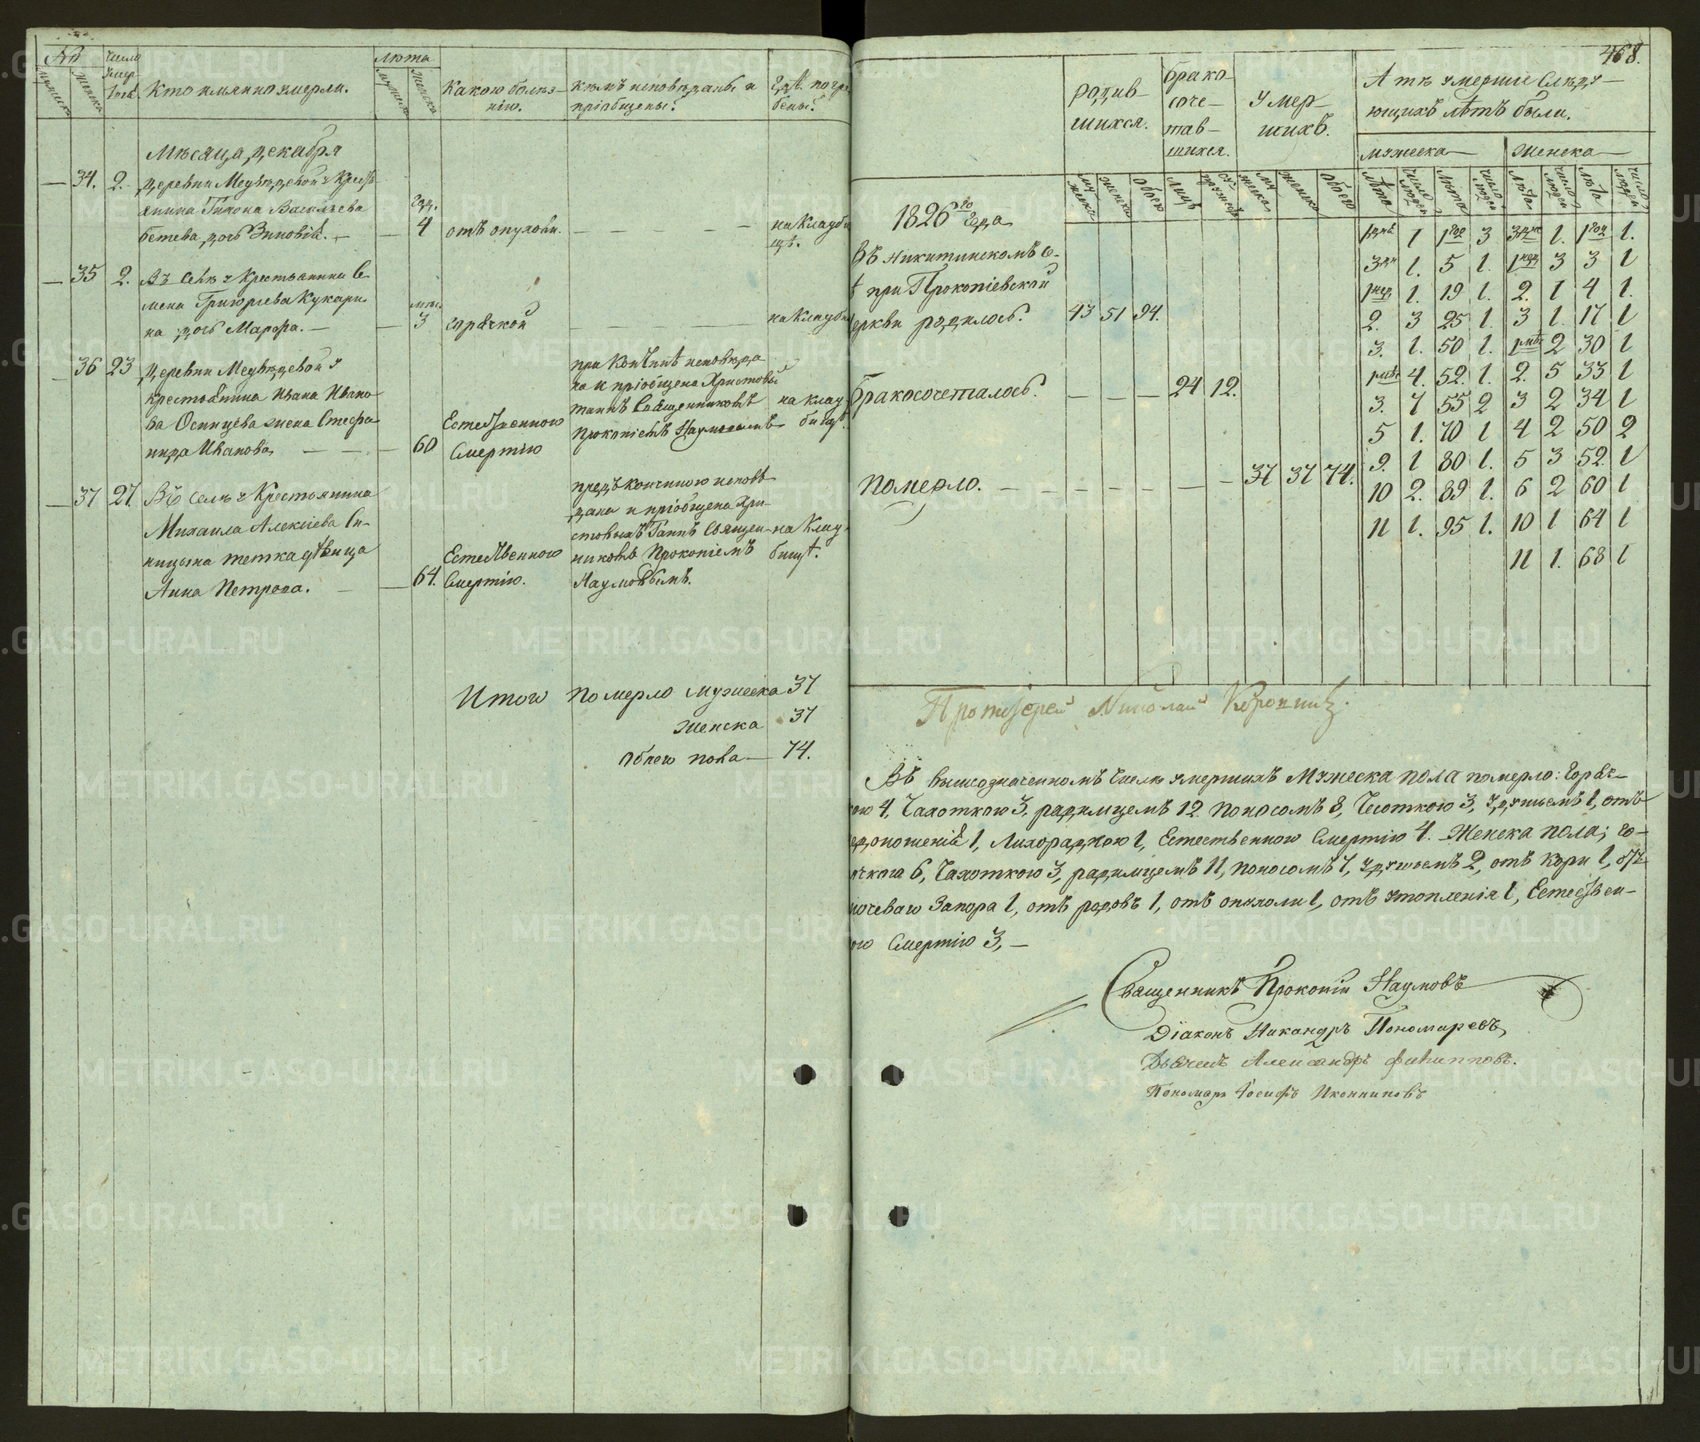 №
число
лѣта
мужеска
женска
Кто имянно умерли.
Какою болѣз-
нію.
кѣмъ исповѣданы и
пріобщены?
Гдѣ погре-
бены?
Мѣсяца декабря
34. 2. деревни Медвѣдевой у Кресть
янина Тихона Васильева
дочь Зиновія. 4 отъ опухоли. на кладби
щѣ.
35 2. Въ селѣ у Крестьянина Се-
мена Григорьева Кукари-
на дочь Марѳа. 3 горячкой на кладби
36 23 деревни Медвѣдевой у
крестьянина Ивана Ивано-
ва Осинцева жена Стефа-
нида Иванова, 60 Естественною
смертію
при кончинѣ исповѣда
на и пріобщена Христовы
таинъ Священникомъ
Прокопіемъ Наумовымъ
на клад
бищѣ.
37 27. Въ селѣ у Крестьянина
Михаила Алексіева Си-
ницына тетка дѣвица
Анна Петрова. 64. Естественною
Смертію.
предъ кончиною исповѣ
дана и пріобщена Хри-
стовыхъ Таинъ Священ-
никомъ Прокопіемъ
Наумовымъ.
на клад-
бищѣ.
Итого померло мужеска 37
женска 37
обоего пола 74.
468.
родив-
шихся.
брако-
соче-
тав-
шихся.
умер-
шихъ.
А тѣ умершіе слѣду-
ющихъ лѣтъ были.
мужеска женска
1826го года
Въ Никитинскомъ се-
лѣ при Прокопіевской
церкви родилось. 43 51 94.
бракосочеталось. 24 12.
померло. 37 37 74.
1 1 3 1. 1.
1. 5 1. 3 3 1
1. 19 1. 2. 1 4 1.
2. 3 25 1. 3 1. 17 1
3. 1. 50 1. 2 30 1
4. 52. 1. 2. 5 33 1
3. 7 55 2 3 2 34 1
5 1. 70 1 4 2 50 2
9. 1 80 1. 5 3 52. 1
10 2. 89 1. 6 2 60 1
11 1. 95 1. 10 1 64 1
11 1. 68 1
Протоіерей Николай
Въ вышеозначенномъ числѣ умершихъ мужеска пола померло: горяч-
кою 4, Чахоткою 3, родимцемъ 12 поносомъ 8, Чесоткою 3, удушьемъ 1, отъ
1, Лихорадкою 1, Естественною Смертію 4. Женска пола; го-
рячкою 6, Чахоткою 3, родимцемъ 11, поносомъ 7, удушьемъ 2, отъ кори 1,
запора 1, отъ родовъ 1, отъ опухоли 1, отъ утопленія 1, Естествен-
ною Смертію 3, —
Священникъ Прокопій Наумовъ
Діаконъ Никандръ Пономаревъ,
Дьячекъ Александръ Филипповъ.
Пономарь Іосифъ Иконниковъ
METRIKI.GASO-URAL.RU